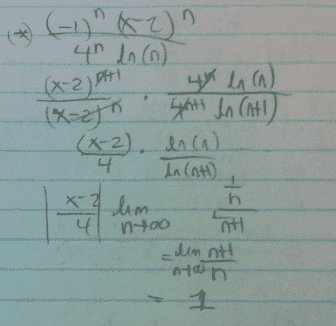 (*) (-1)^n (x-2)^n / 4^n ln(n)
(x-2)^{n+1} / (x-2)^n · 4^n ln(n) / 4^{n+1} ln(n+1)
(x-2) / 4 · ln(n) / ln(n+1)
|x-2 / 4| lim n→∞ 1/n / n+1
= lim n→∞ n+1 / n
= 1